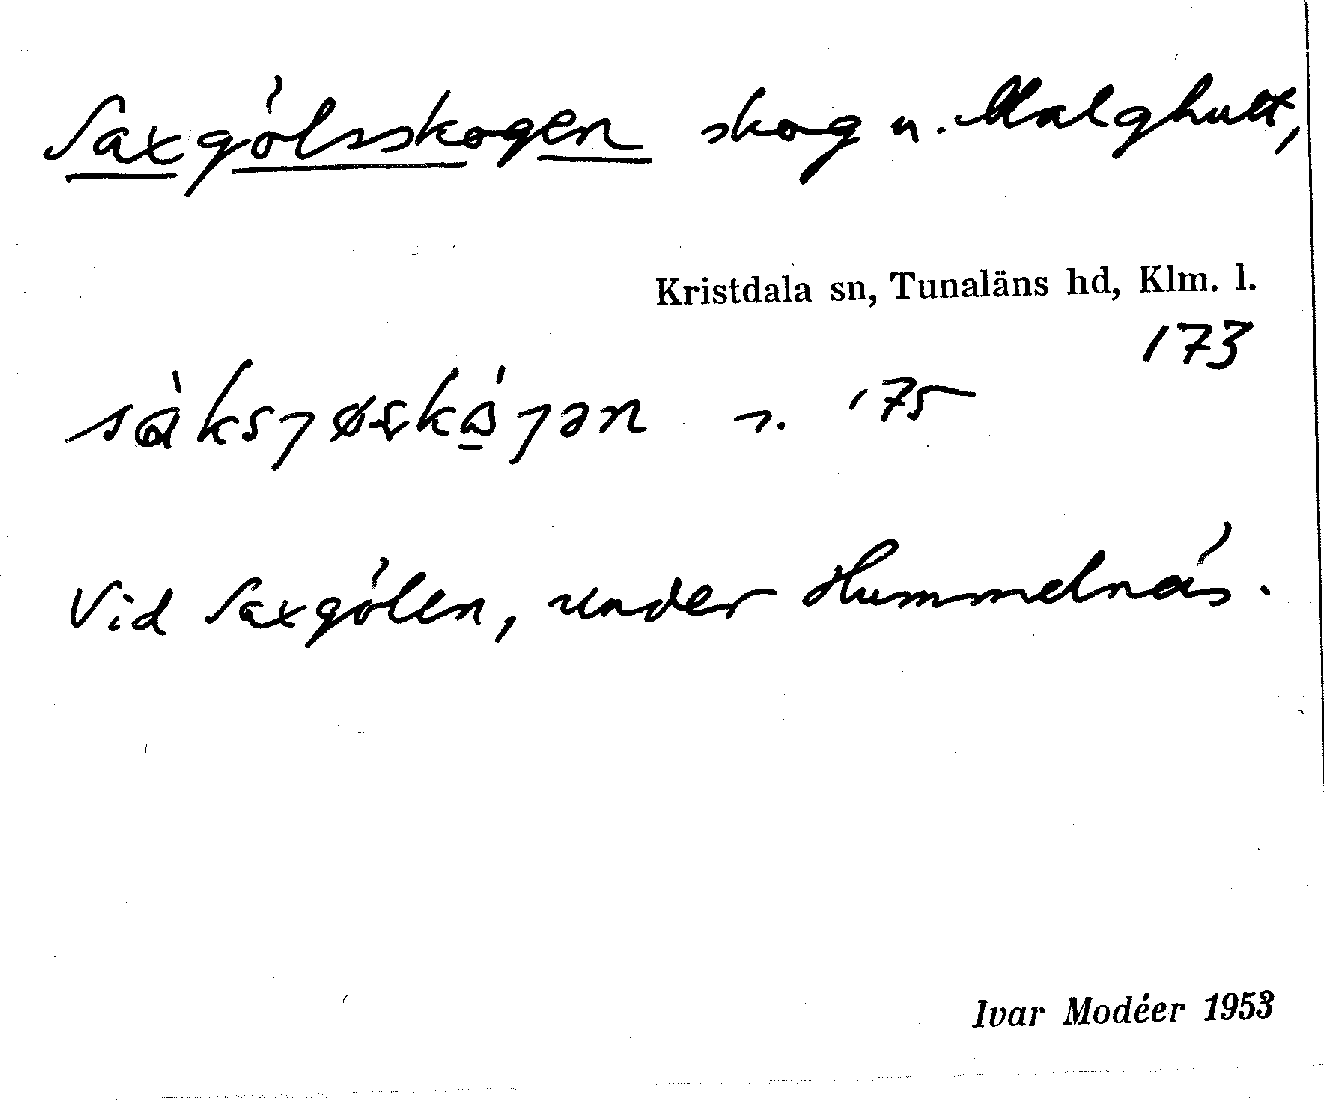 Saxgölsskogen skog u. Malghult,
Kristdala sn, Tunaläns hd, Klm. l.
173
175
Vid Saxgölen, under Hummelnäs.
Ivar Modéer 1953